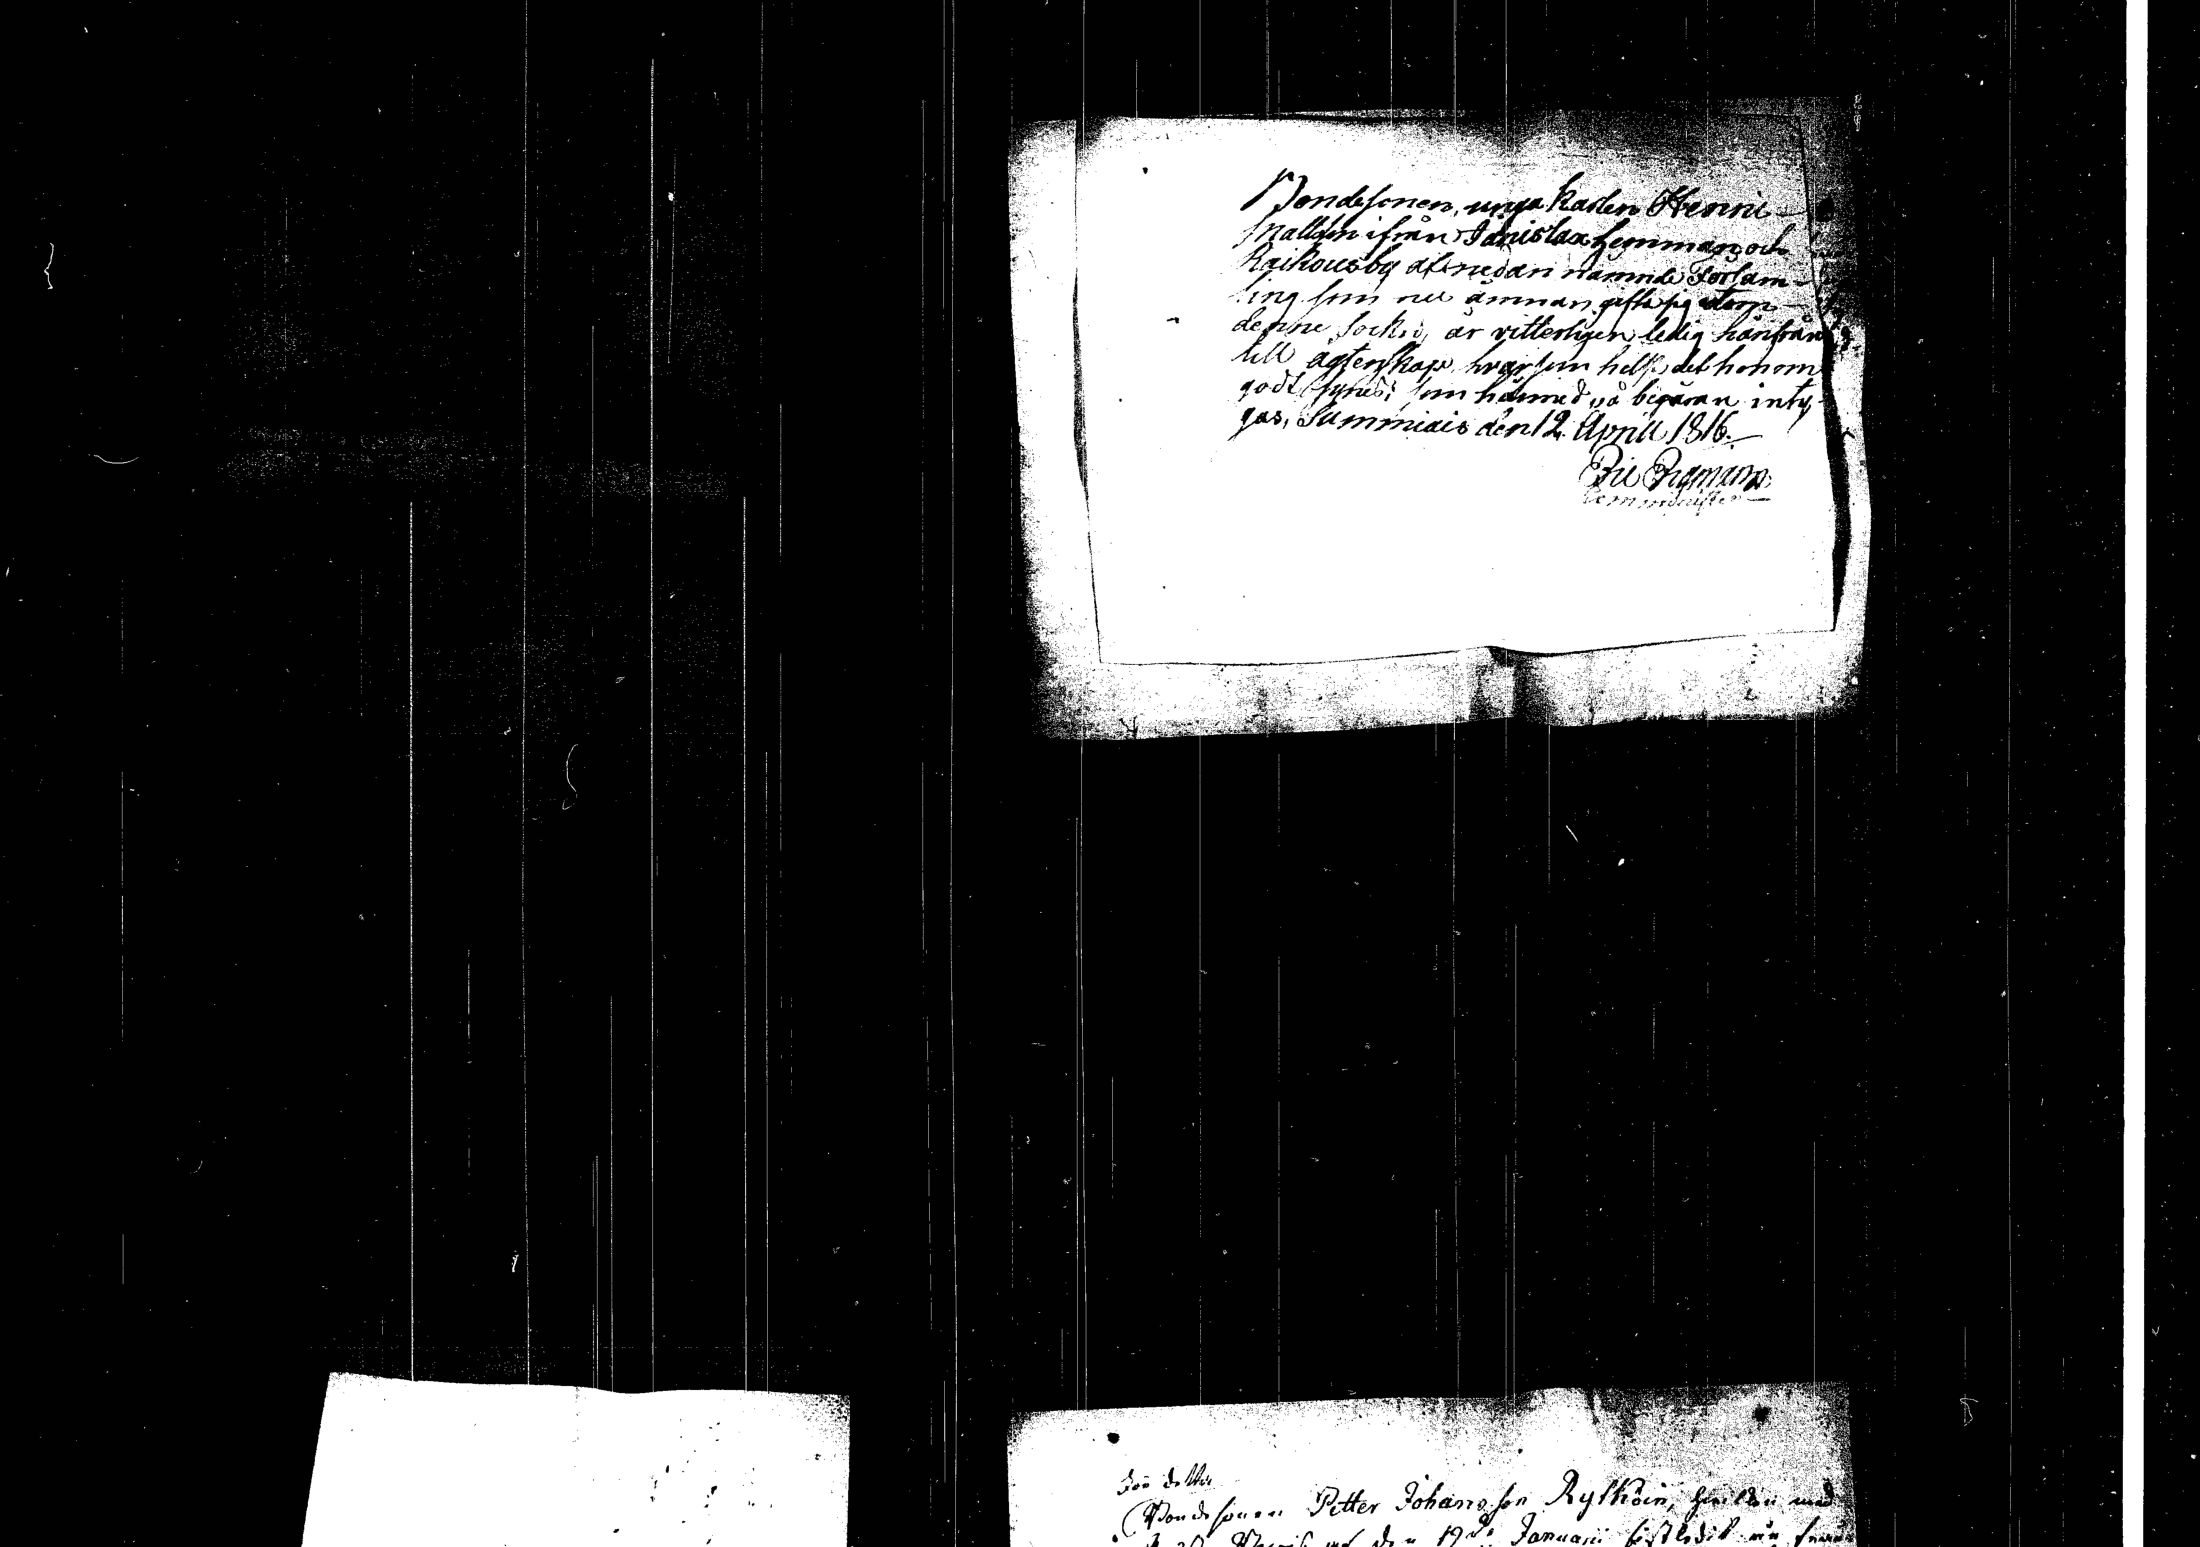 Bondesonen, unga Karlen Henric
Mattson ifrån Hemman och
Raikous by af nedan nämnde Försam-
ling som nu ämnar gifta sig utom
denne Socken, är vitterligen ledig härifrån
till ägtenskap hvar som helst det honom
godt synes; som härmed på begäran inty-
gas, Summiais den 12 April 1816.
Eric
Comminister
Bondesonen Petter Johansson hvilken med
af den 19de Januarii sistledit